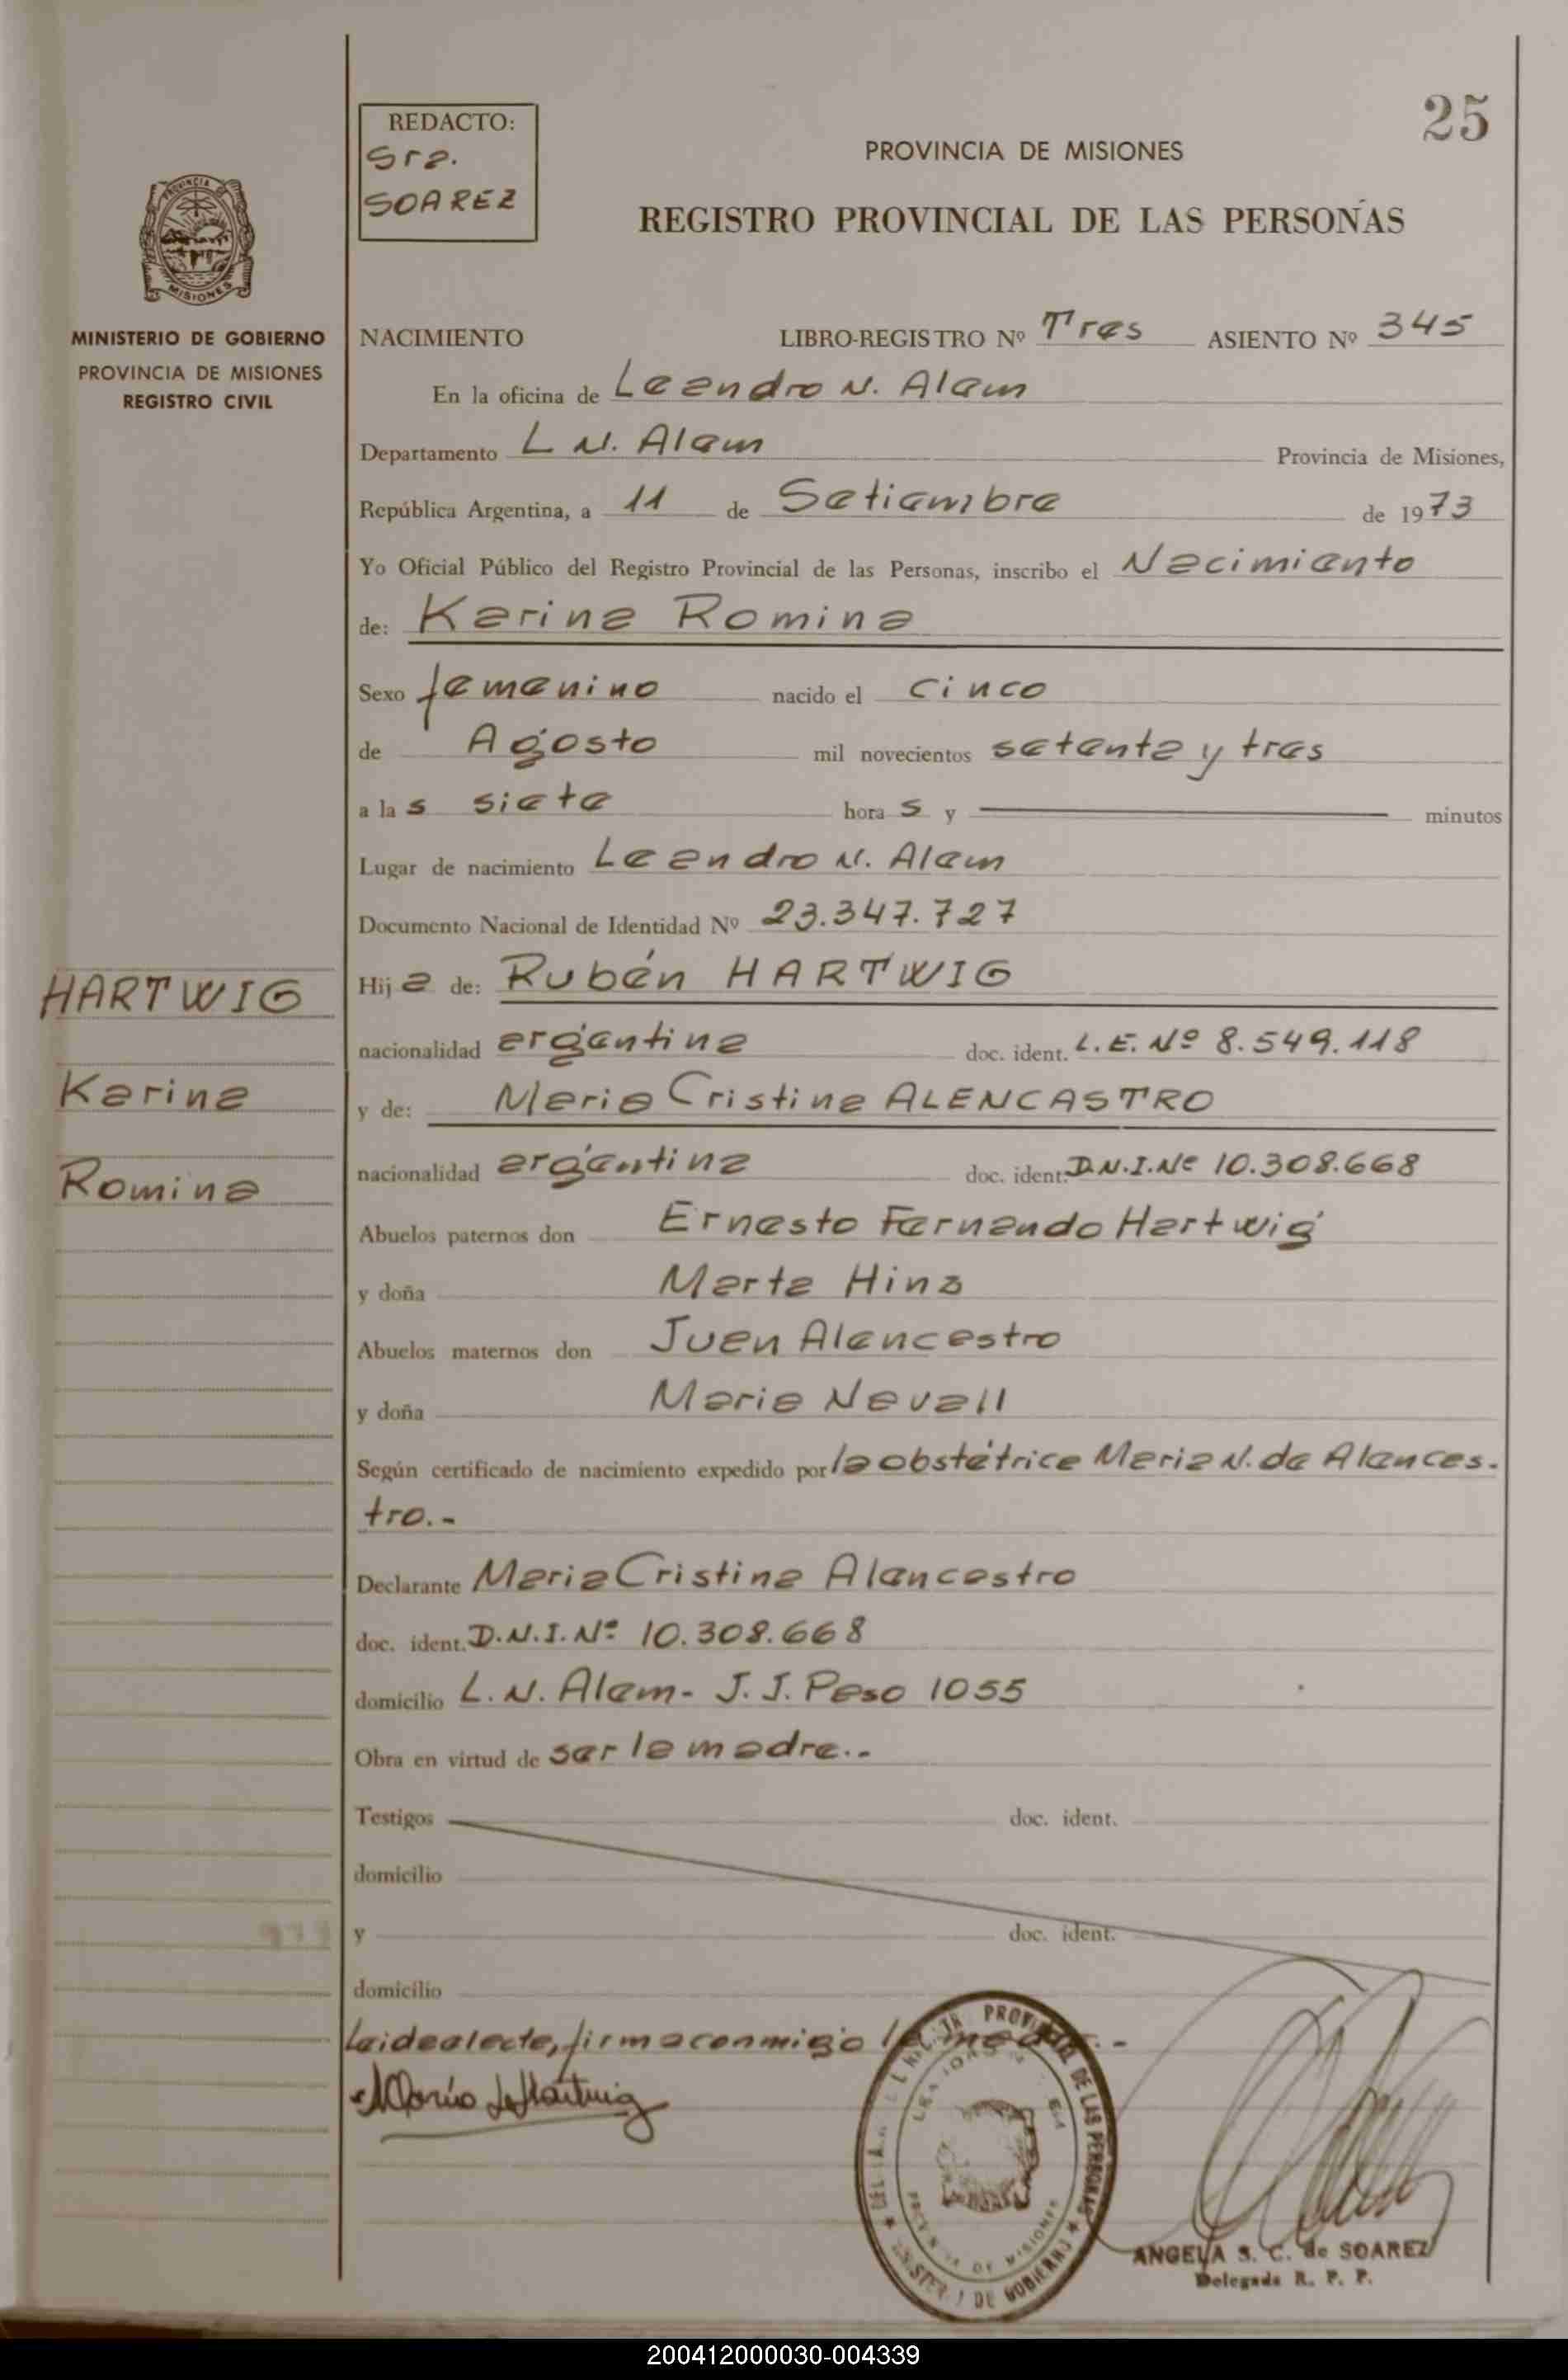 25
REDACTO:
Sra.
SOAREZ
PROVINCIA DE MISIONES
REGISTRO PROVINCIAL DE LAS PERSONAS
PROVINCIA DE
MISIONES
MINISTERIO DE GOBIERNO
PROVINCIA DE MISIONES
REGISTRO CIVIL
NACIMIENTO LIBRO-REGISTRO Nº Tres ASIENTO Nº 345
En la oficina de Leandro N. Alem
Departamento L N. Alem Provincia de Misiones,
República Argentina, a 11 de Setiembre de 1973
Yo Oficial Público del Registro Provincial de las Personas, inscribo el Nacimiento
de: Karina Romina
Sexo femenino nacido el cinco
de Agosto mil novecientos setenta y tres
a las siete horas y minutos
Lugar de nacimiento Leandro N. Alem
Documento Nacional de Identidad Nº 23.347.727
HARTWIG
Karina
Romina
Hija de: Rubén HARTWIG
nacionalidad argentina doc. ident. L.E. Nº 8.549.118
y de: Maria Cristina ALENCASTRO
nacionalidad argentina doc. ident. D.N.I. Nº 10.308.668
Abuelos paternos don Ernesto Fernando Hartwig
y doña Marta Hinz
Abuelos maternos don Juan Alencastro
y doña Maria Nevall
Según certificado de nacimiento expedido por la obstétrica Maria N. de Alencas-
tro.-
Declarante Maria Cristina Alencastro
doc. ident. D.N.I. Nº 10.308.668
domicilio L. N. Alem- J. J. Paso 1055
Obra en virtud de ser la madre..-
Testigos doc. ident.
domicilio
y doc. ident.
domicilio
Leida el acta, firma conmigo la .-
PROVINCIAL DE LAS PERSONAS
DE GOBIERNO
DE MISIONES
ANGELA S. C. de SOAREZ
Delegada R. P. P.
200412000030-004339